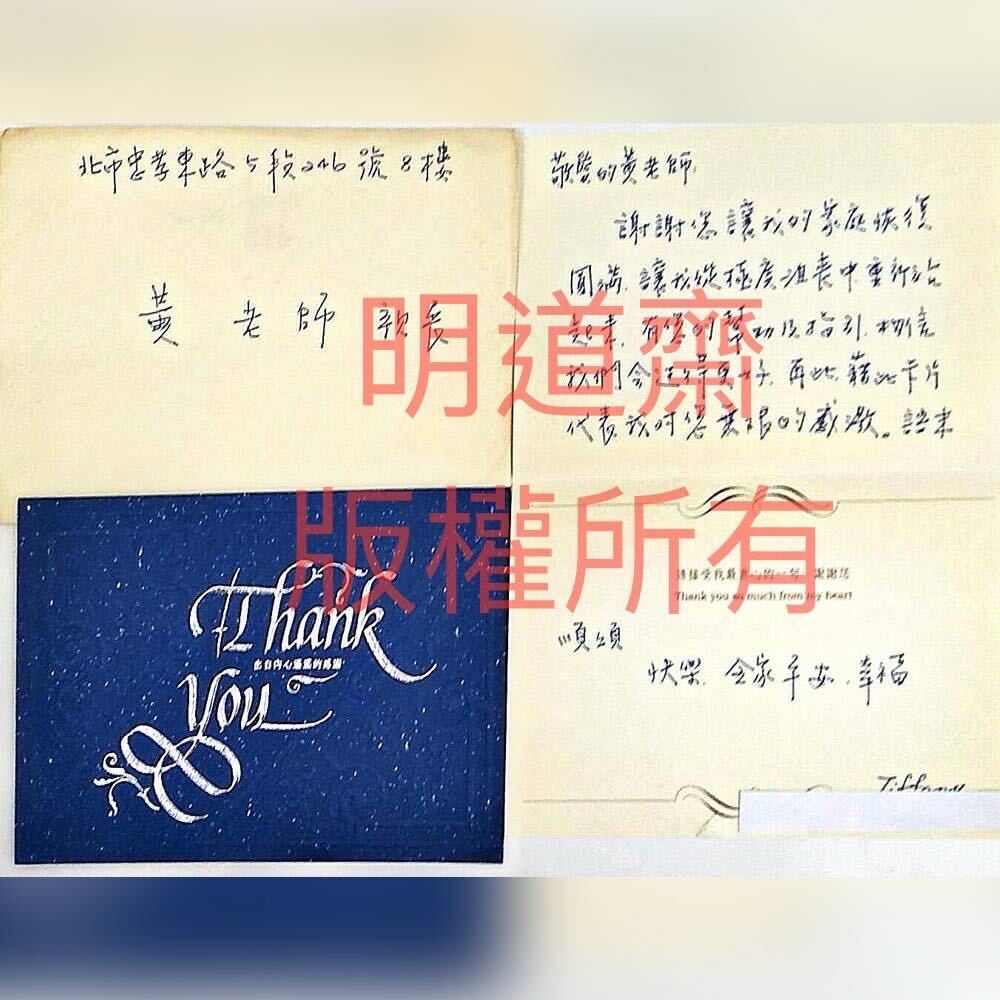 北市忠孝東路5段246號8樓
黃老師 親展
敬愛的黃老師:
謝謝您讓我的家庭恢復
圓滿,讓我從極度沮喪中重新站
起來,有您的幫助及指引,相信
我們會過得更好,再此藉此卡片
代表我對您無限的感激。
請接受我最真心的一句‧謝謝您
Thank you so much from my heart
順頌
快樂,全家平安,幸福
Tiffany
Thank
出自內心溫馨的感謝
You
明道齋
版權所有